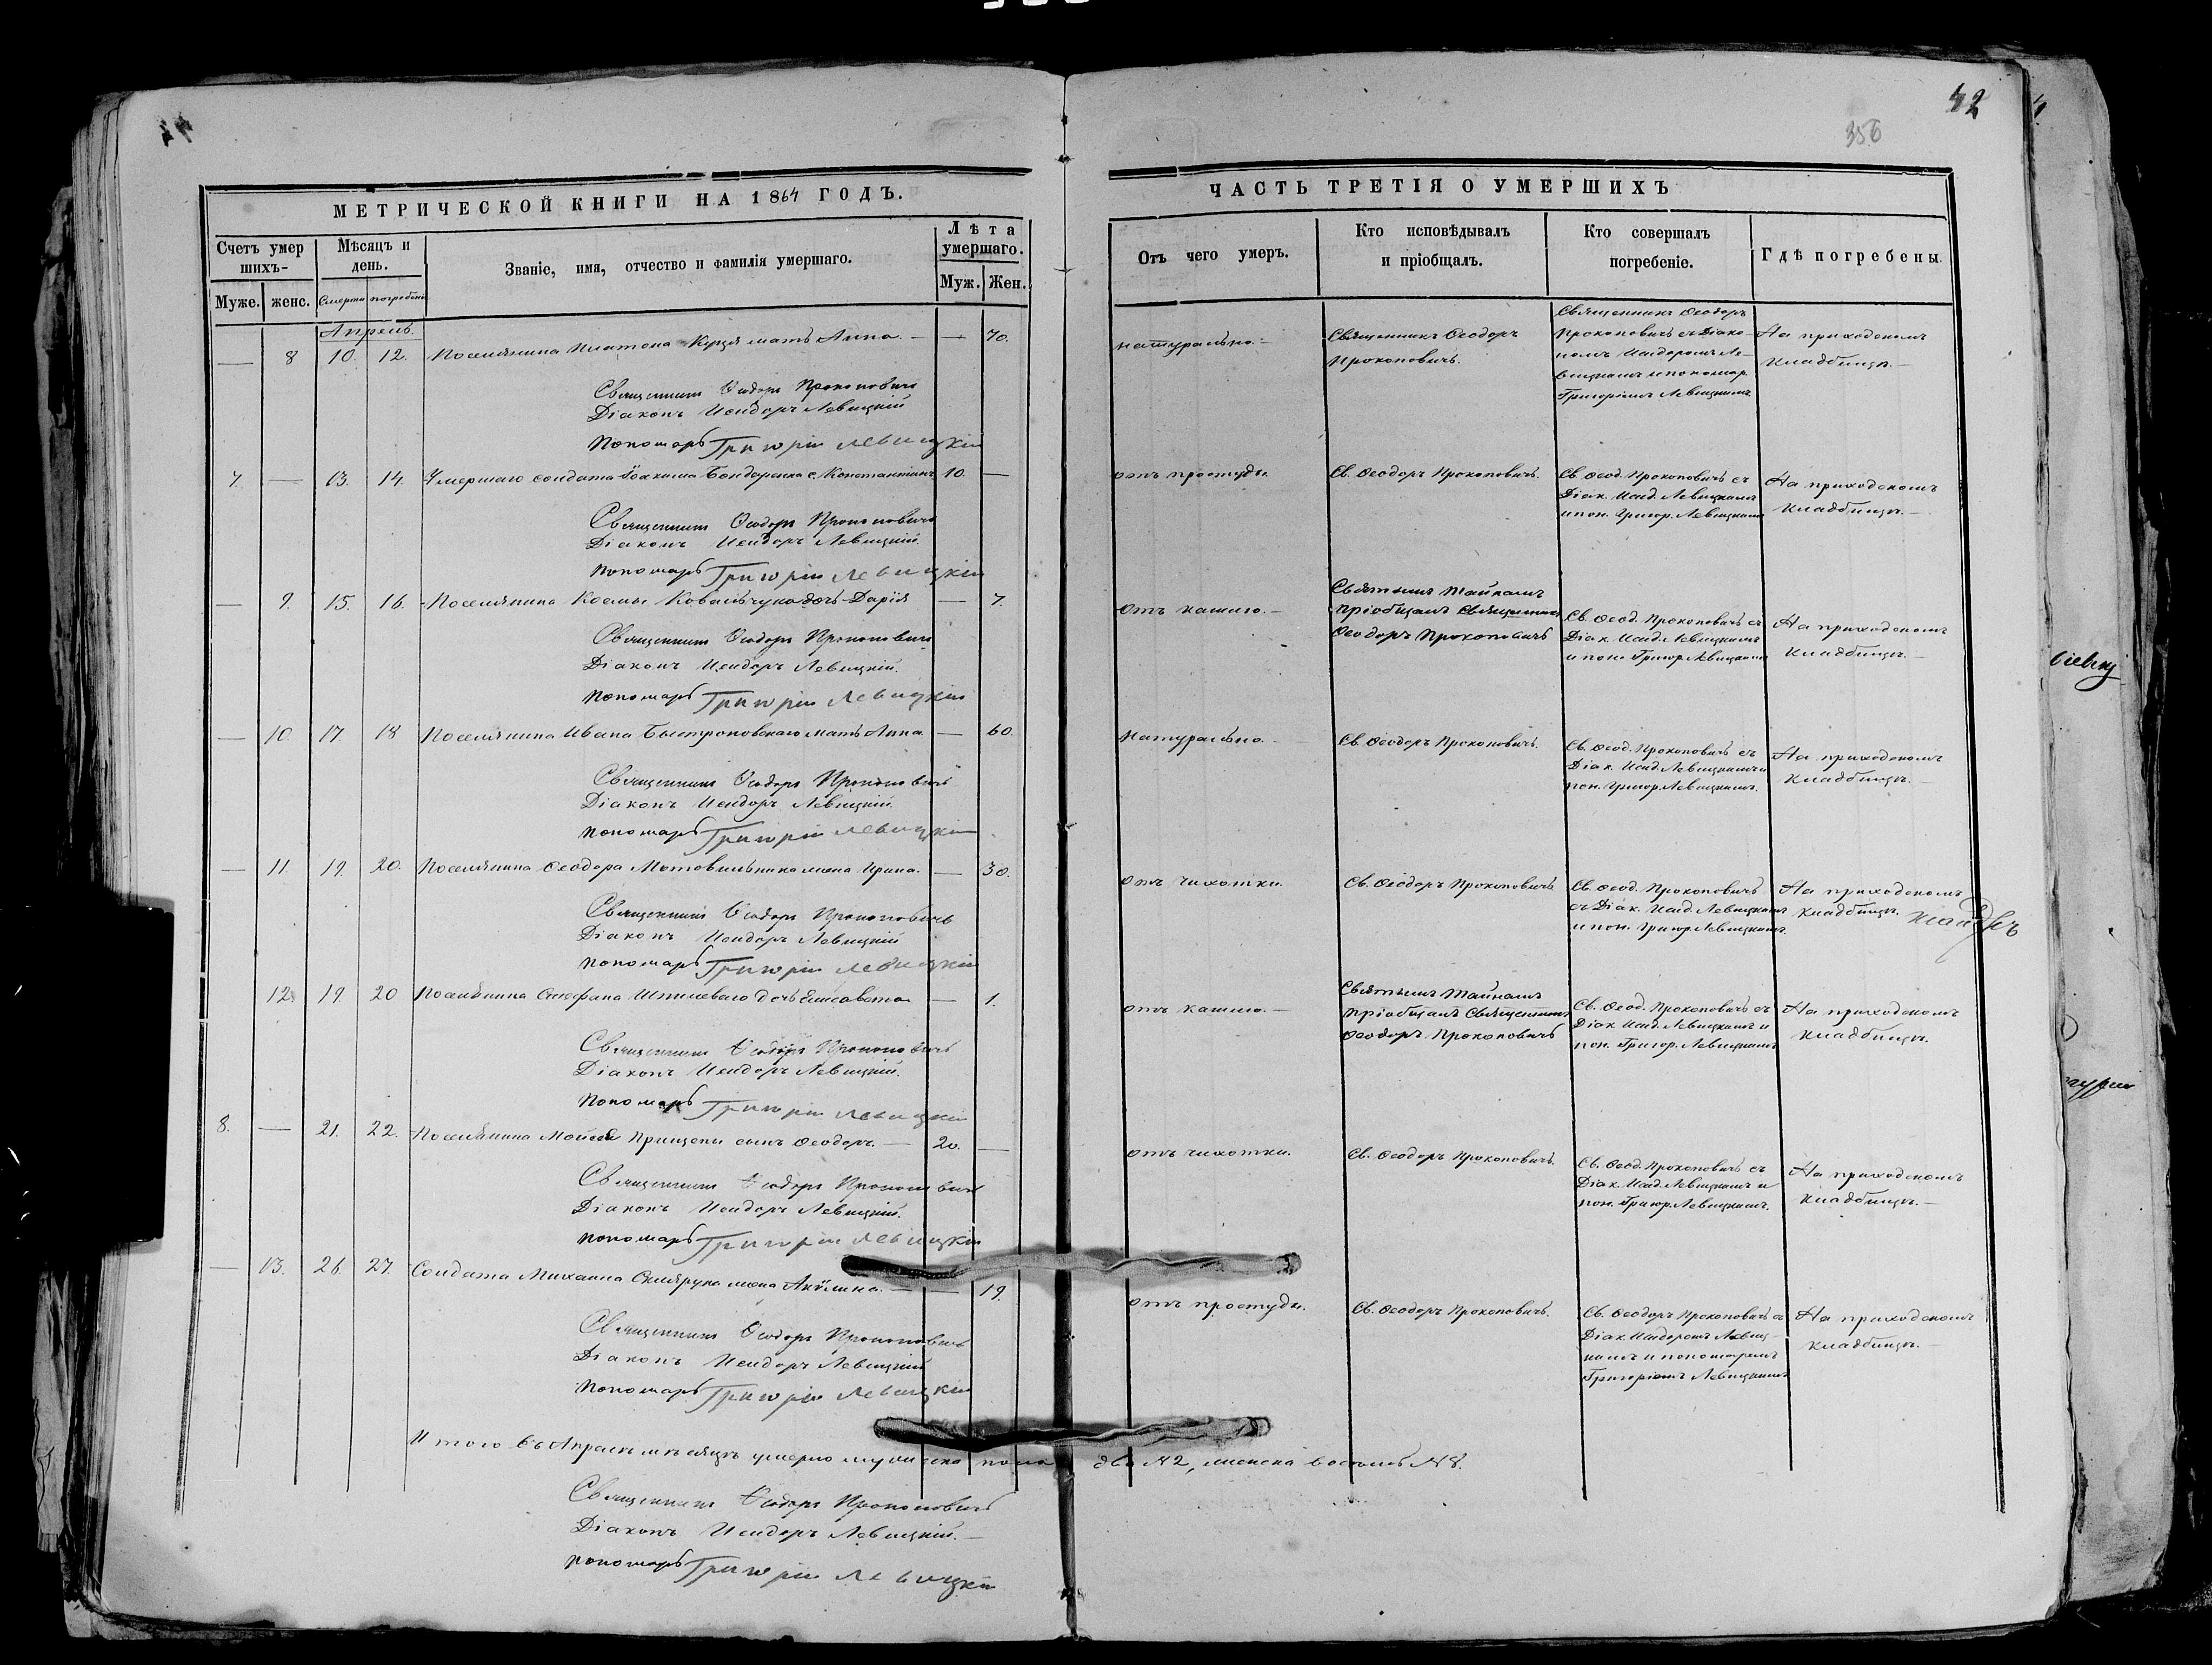 42
356
МЕТРИЧЕСКОЙ КНИГИ НА 1864 ГОДЪ.
Счетъ умер
шихъ-
Мѣсяцъ и
день.
Званіе, имя, отчество и фамилія умершаго.
Лѣта
умершаго.
Муже. женс. Смерти погребенія Муж. Жен.
Апрель.
— 8 10. 12. Поселянина Платона Куця мать Анна. — — 70.
Священникъ Ѳеодоръ Прокоповичъ
Діаконъ Исидоръ Левицкій
Пономарь Григорій Левицкій
7. — 13. 14. Умершаго солдата Іоакима Бондаренка с. Константинъ 10. —
Священникъ Ѳеодоръ Прокоповичъ
Діаконъ Исидоръ Левицкій.
Пономарь Григорій Левицкій
— 9. 15. 16. Поселянина Космы Ковальчука дочь Дарія — 7.
Священникъ Ѳеодоръ Прокоповичъ
Діаконъ Исидоръ Левицкій.
Пономарь Григорій Левицкій
— 10. 17. 18 Поселянина Ивана Быстроновскаго мать Анна. — 60.
Священникъ Ѳеодоръ Прокоповичъ
Діаконъ Исидоръ Левицкій.
Пономарь Григорій Левицкій
— 11. 19. 20. Поселянина Ѳеодора Мотовильника жена Ирина. — 30.
Священникъ Ѳеодоръ Прокоповичъ
Діаконъ Исидоръ Левицкій
Пономарь Григорій Левицкій
12 19. 20 Поселянина Стефана Шпилеваго дочь Елисавета — 1.
Священникъ Ѳеодоръ Прокоповичъ
Діаконъ Исидоръ Левицкій.
Пономарь Григорій Левицкій
8. — 21. 22. Поселянина Моисея Прищепы сынъ Ѳеодоръ. — 20. —
Священникъ Ѳеодоръ Прокоповичъ
Діаконъ Исидоръ Левицкій.
Пономарь Григорій Левицкій
— 13. 26. 27. Солдата Михаила Склярука жена Акилина. — — 19.
Священникъ Ѳеодоръ Прокоповичъ
Діаконъ Исидоръ Левицкій
Пономарь Григорій Левицкій
Итого въ Апрелѣ мѣсяцѣ умерло мужеска пола два №2, женска восемь №8.
Священникъ Ѳеодоръ Прокоповичъ
Діаконъ Исидоръ Левицкій. —
Пономарь Григорій Левицкій
ЧАСТЬ ТРЕТІЯ О УМЕРШИХЪ
Отъ чего умеръ.
Кто исповѣдывалъ
и пріобщалъ.
Кто совершалъ
погребеніе.
Гдѣ погребены.
натурально. —
Священникъ Ѳеодоръ
Прокоповичъ.
Священникъ Ѳеодоръ
Прокоповичъ съ Діако-
номъ Исидоромъ Ле-
вицкимъ и пономар.
Григоріемъ Левицкимъ
На приходскомъ
кладбищѣ. —
отъ простуды.
Св. Ѳеодоръ Прокоповичъ.
Св. Ѳеод. Прокоповичъ съ
Діак. Исид. Левицкимъ
и пон. Григор. Левицкимъ
На приходскомъ
кладбищѣ. —
Отъ кашлю. —
Святымъ Тайнамъ
пріобщалъ Священникъ
Ѳеодоръ Прокоповичъ
Св. Ѳеод. Прокоповичъ съ
Діак. Исид. Левицкимъ
и пон. Григор. Левицкимъ
На приходскомъ
кладбищѣ. —
Натурально. —
Св. Ѳеодоръ Прокоповичъ.
Св. Ѳеод. Прокоповичъ съ
Діак. Исид. Левицкимъ и
пон. Григор. Левицкимъ.
На приходскомъ
кладбищѣ. —
Отъ чихотки.
Св. Ѳеодоръ Прокоповичъ
Св. Ѳеод. Прокоповичъ
съ Діак. Исид. Левицкимъ
и пон. Григор. Левицкимъ.
На приходскомъ
кладбищѣ.
отъ кашлю. —
Святымъ Тайнамъ
пріобщалъ Священникъ
Ѳеодоръ Прокоповичъ
Св. Ѳеод. Прокоповичъ съ
Діак. Исид. Левицкимъ и
пон. Григор. Левицкимъ
На приходскомъ
кладбищѣ.
отъ чихотки.
Св. Ѳеодоръ Прокоповичъ.
Св. Ѳеод. Прокоповичъ съ
Діак. Исид. Левицкимъ и
пон. Григор. Левицкимъ.
На приходскомъ
кладбищѣ. —
отъ простуды.
Св. Ѳеодоръ Прокоповичъ.
Св. Ѳеодоръ Прокоповичъ съ
Діак. Исидоромъ Левиц-
кимъ и пономаремъ
Григоріемъ Левицкимъ
На приходскомъ
кладбищѣ. —